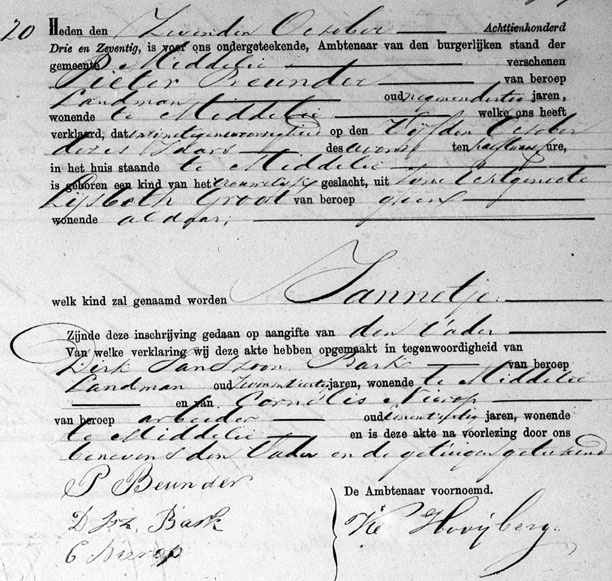 20 Heden den Zevenden October Achttienhonderd
Drie en Zeventig, is voor ons ondergeteekende, Ambtenaar van den burgerlijken stand der
gemeente Middelie verschenen
Pieter Beunder van beroep
Landman oud negenendertig jaren,
wonende te Middelie welke ons heeft
verklaard, dat in zijne tegenwoordigheid op den Vijfden October
dezes Jaars des avonds ten half twaalf ure,
in het huis staande te Middelie
is geboren een kind van het vrouwelijk geslacht, uit zijne Echtgenoote
Lijsbeth Groot van beroep geen
wonende aldaar;
welk kind zal genaamd worden Jannetje.
Zijnde deze inschrijving gedaan op aangifte van den Vader
Van welke verklaring wij deze akte hebben opgemaakt in tegenwoordigheid van
Dirk Janszoon Bark van beroep
Landman oud jaren, wonende te Middelie
en van Cornelis Nierop
van beroep arbeider oud jaren, wonende
te Middelie en is deze akte na voorlezing door ons
benevens den Vader en de getuigen geteekend
P Beunder
De Ambtenaar voornoemd.
D Jsz. Bark
K Hooijberg.
C Nierop